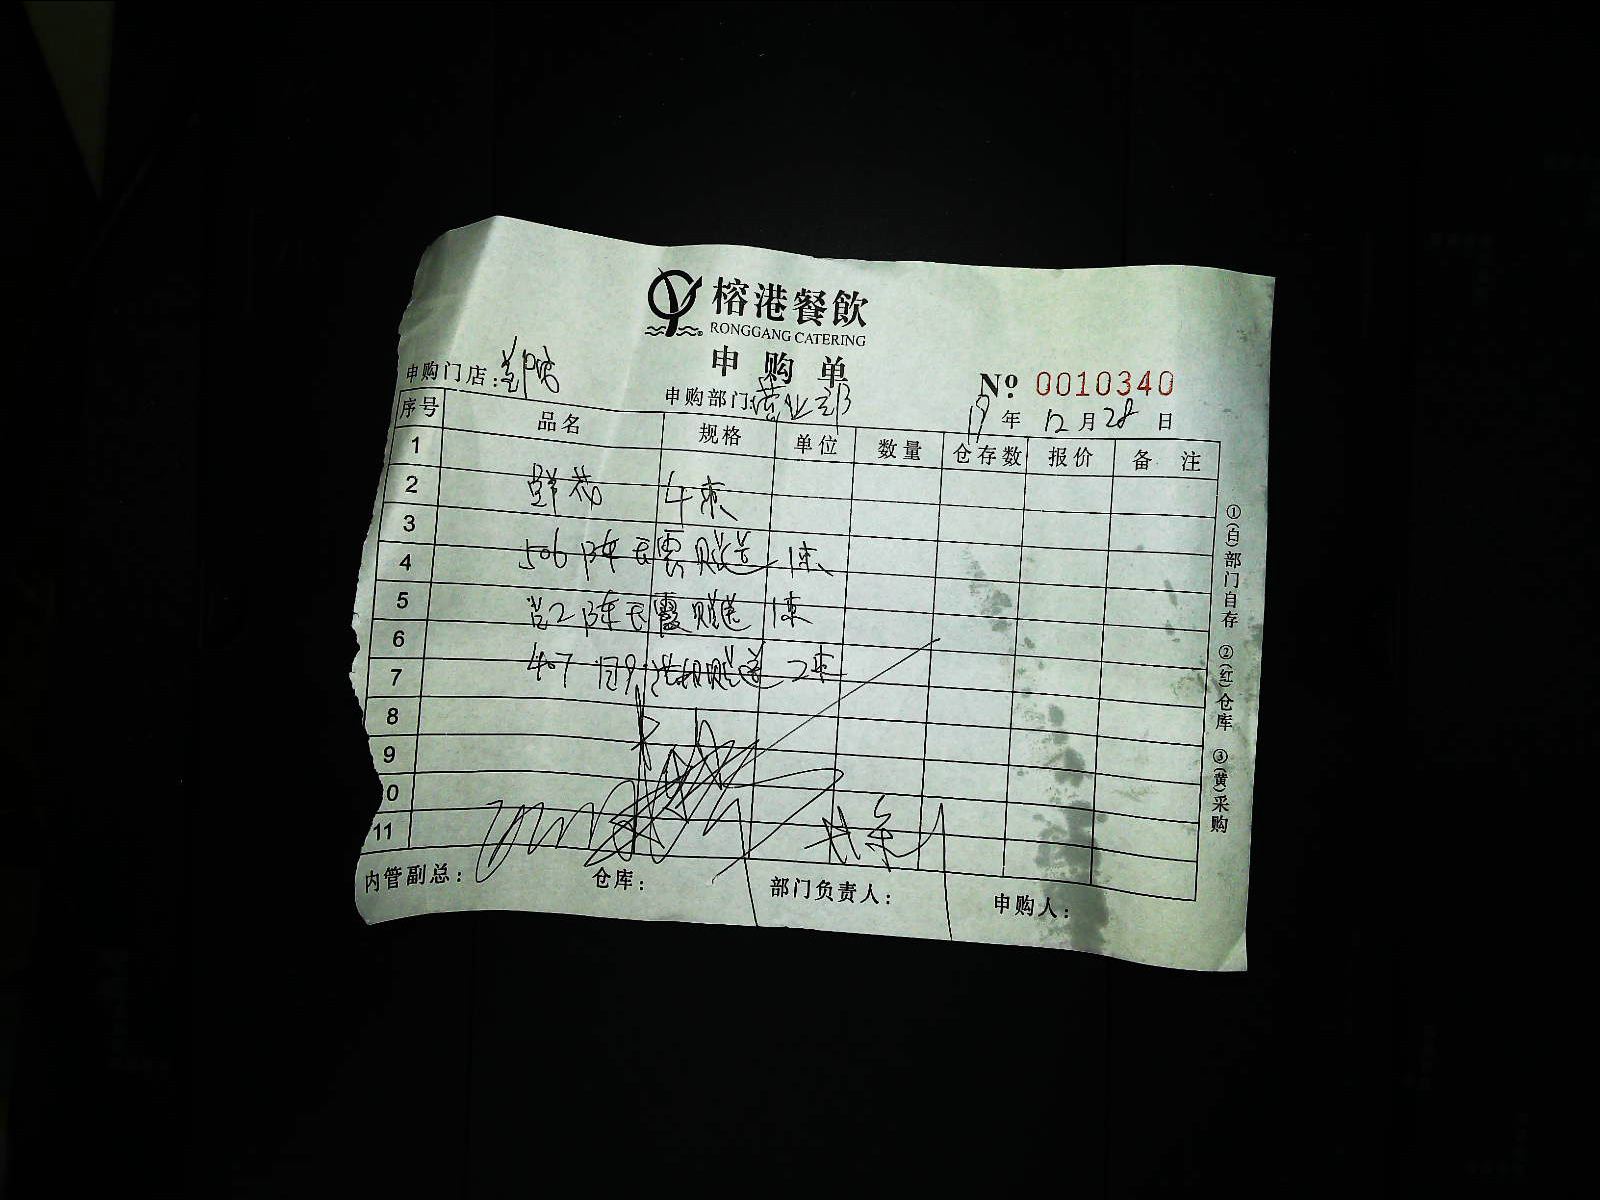 榕港餐飲
RONGGANG CATERING
申购单
申购门店：
申购部门：营业部
№ 0010340
19年12月28日
序号 品名 规格 单位 数量 仓存数 报价 备注
1
2 鲜花 4束
3
4 506 陈 云霞赠送 1束
5 陈 云霞赠送 1束
6
7 407 赠送 2束
8
9
0
11
内管副总：
仓库：
部门负责人：
申购人：
①(白)部门自存 ②(红)仓库 ③(黄)采购